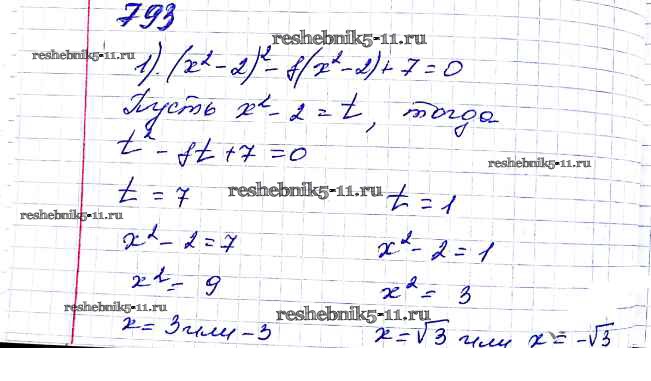 793
reshebnik5-11.ru
reshebnik5-11.ru
1). (x² - 2)² - 8(x² - 2) + 7 = 0
Пусть x² - 2 = t, тогда
t² - 8t + 7 = 0
reshebnik5-11.ru
t = 7 reshebnik5-11.ru t = 1
reshebnik5-11.ru
x² - 2 = 7 x² - 2 = 1
x² = 9 x² = 3
reshebnik5-11.ru reshebnik5-11.ru
x = 3 или -3 x = √3 или x = -√3